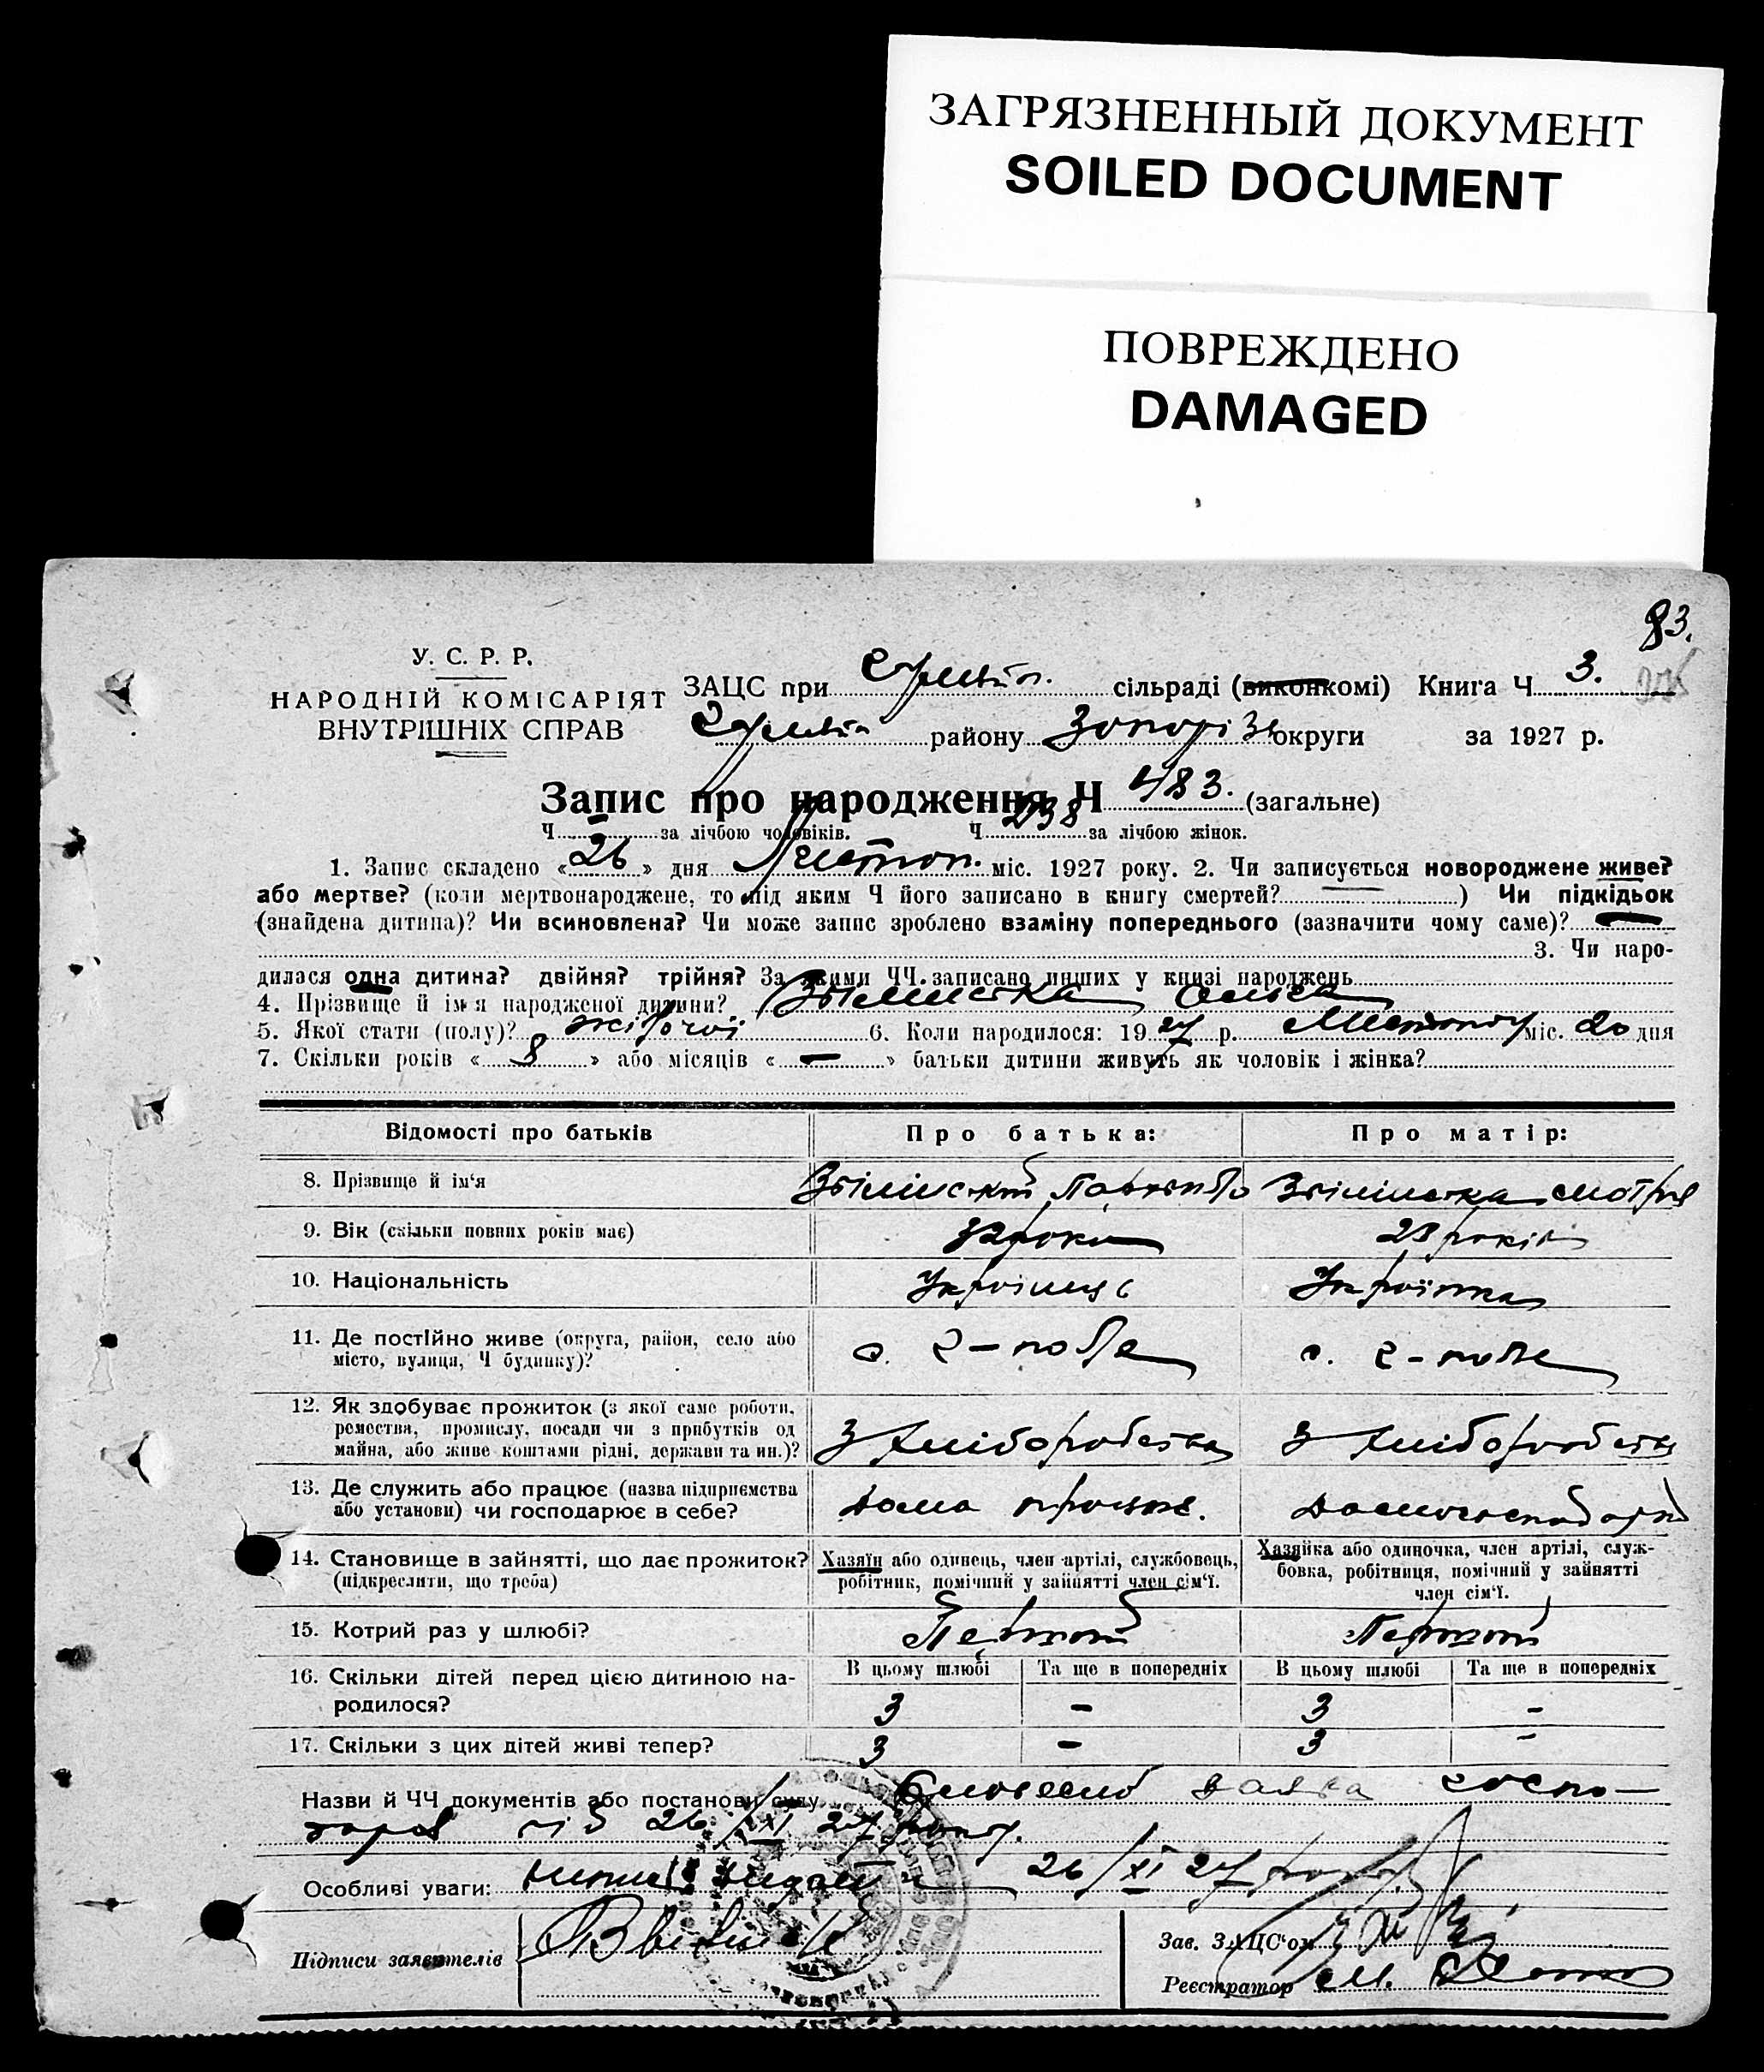 ЗАГРЯЗНЕННЫЙ ДОКУМЕНТ
SOILED DOCUMENT
ПОВРЕЖДЕНО
DAMAGED
83.
У. С. Р. Р.
НАРОДНІЙ КОМІСАРІЯТ
ВНУТРІШНІХ СПРАВ
ЗАЦС при сільраді (виконкомі) Книга Ч 3.
району Запорізь округи за 1927 р.
Запис про народження Ч 483. (загальне)
Ч – за лічбою чоловіків. Ч 238 за лічбою жінок.
1. Запис складено «26» дня Листоп. міс. 1927 року. 2. Чи записується новороджене живе?
або мертве? (коли мертвонароджене, то під яким Ч його записано в книгу смертей? —) Чи підкідьок
(знайдена дитина)? Чи всиновлена? Чи може запис зроблено взаміну попереднього (зазначити чому саме)? —
3. Чи наро-
дилася одна дитина? двійня? трійня? За якими ЧЧ. записано инших у книзі народжень
4. Прізвище й ім'я народженої дитини? Ольга
5. Якої статі (полу)? жіночої 6. Коли народилося: 1927 р. Листопаду міс. 20 дня
7. Скільки років «8» або місяців «—» батьки дитини живуть як чоловік і жінка?
Відомості про батьків Про батька: Про матір:
8. Прізвище й ім'я Мотря
9. Вік (скільки повних років має) 32 роки 28 років
10. Національність Українець Українка
11. Де постійно живе (округа, район, село або
місто, вулиця, Ч будинку)?
12. Як здобуває прожиток (з якої саме роботи,
ремества, промислу, посади чи з прибутків од
майна, або живе коштами рідні, держави та ин.)? З хліборобства З хліборобства
13. Де служить або працює (назва підприємства
або установи) чи господарює в себе? Дома працює.
14. Становище в зайнятті, що дає прожиток?
(підкреслити, що треба)
Хазяїн або одинець, член артілі, службовець,
робітник, помічний у зайнятті член сім'ї.
Хазяйка або одиночка, член артілі, служ-
бовка, робітниця, помічний у зайнятті
член сім'ї.
15. Котрий раз у шлюбі? Первий Первий
16. Скільки дітей перед цією дитиною на-
родилося?
В цьому шлюбі Та ще в попередніх В цьому шлюбі Та ще в попередніх
3 – 3 –
17. Скільки з цих дітей живі тепер? 3 – 3 –
Назви й ЧЧ документів або постанови суду заява
від 26/XI 27 року.
Особливі уваги: 26/XI 27 року
Підписи заявителів
Зав. ЗАЦС'ом
Реєстратор М.